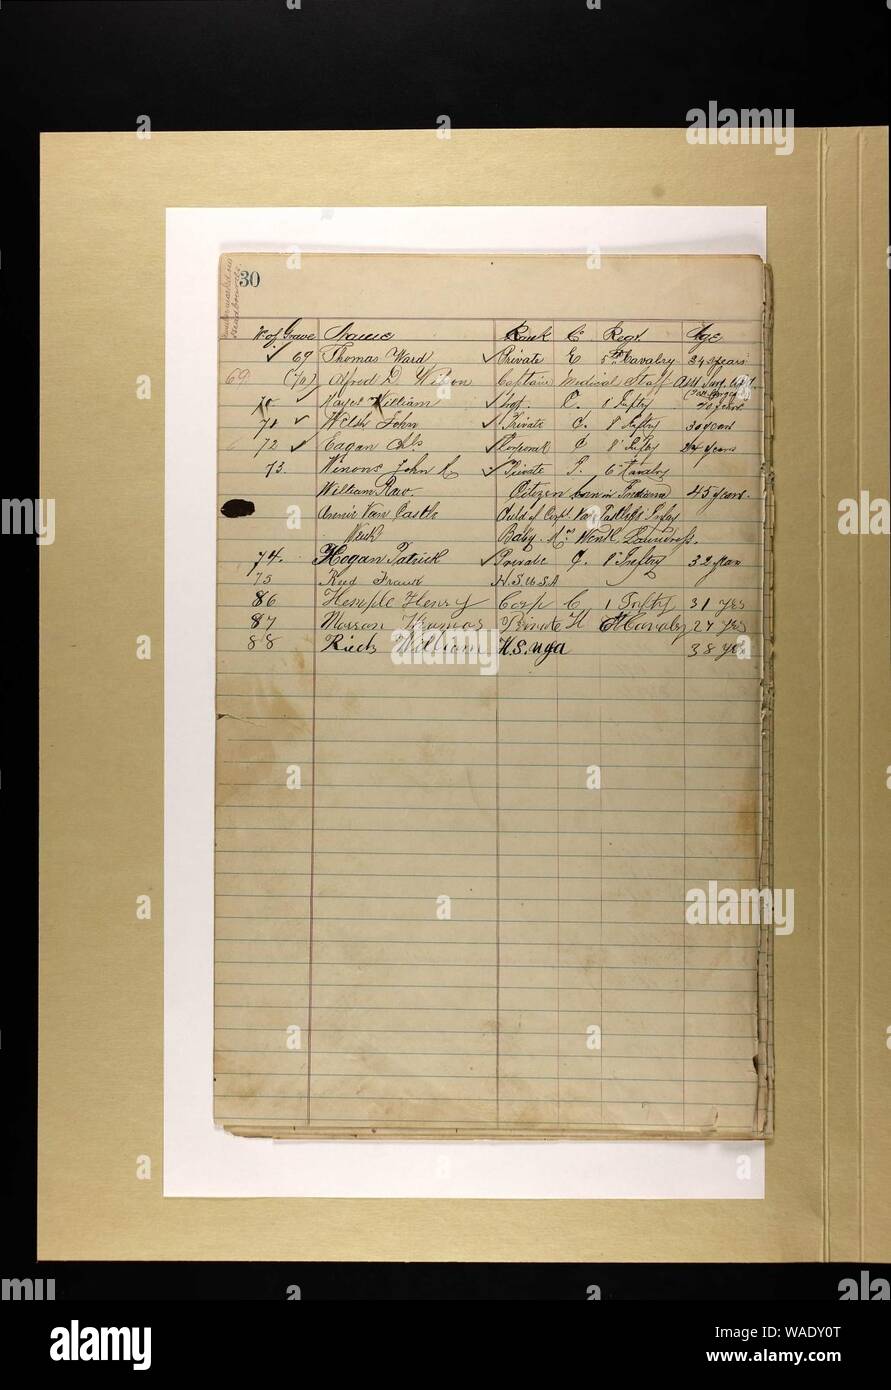 30
No of Grave Name Rank C Regt. Age
69 Thomas Ward Private E 5th Cavalry 34 years
69 (70) Alfred D. Wilson Captain Medical Staff Asst Surg.
70 Hayes William C. 8" Inftry 40 years
71 Welsh John Private G. 8" Inftry 30 years
72 Eagan Chls Corporal 8" Infty years
73. John C Private 6" Cavalry
William Raw. Citizen born in Indiana 45 years.
Annie Van Castle Child of Corpl. Van Infty
Baby Mrs Laundress.
74. Hogan Patrick Private G. 8" Inftry 32 years
75 Reed Frank H.S.U.S.A
86 Hemple Henry Corp C 1 Infty 31 yrs
87 Thomas Private H Cavalry 27 yrs
88 William H.S. 38 yrs
alamy
a
alamy
Image ID: WADY0T
www.alamy.com